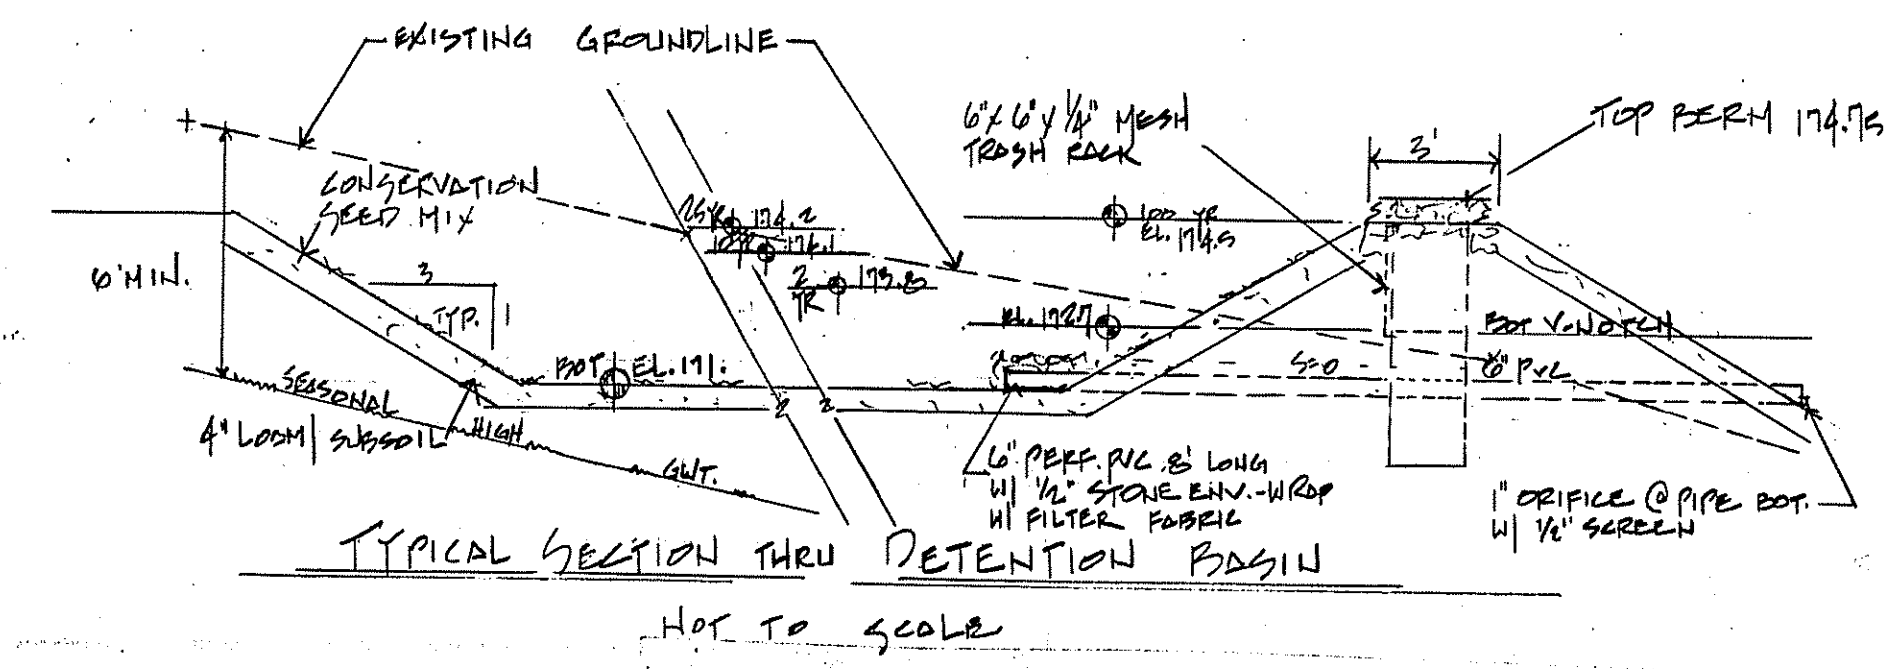 EXISTING GROUNDLINE
6"X6"X1/4" MESH
TRASH RACK
TOP BERM 174.75
3'
CONSERVATION
SEED MIX
25YR 174.2
10YR 174.1
2
YR
173.8
100 YR
EL. 174.5
6'MIN.
3
1
TYP.
EL.172.7
BOT V-NOTCH
BOT EL.171.
S=0
6" PVC
SEASONAL
HIGH
GWT.
4" LOAM/SUBSOIL
6" PERF. PVC 8' LONG
W/ 1/2" STONE ENV.-WRAP
W/ FILTER FABRIC
1" ORIFICE @ PIPE BOT.
W/ 1/2" SCREEN
TYPICAL SECTION THRU DETENTION BASIN
NOT TO SCALE